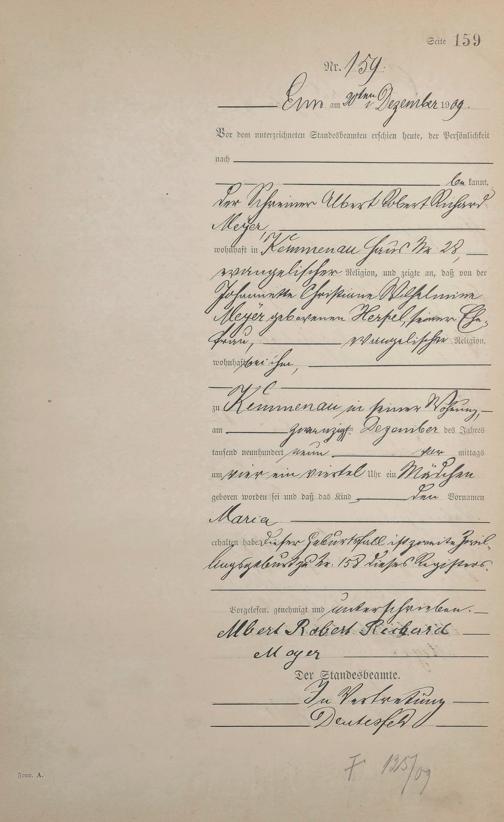 Seite 159
Nr. 159.
Ems am 20ten Dezember 1909.
Vor dem unterzeichneten Standesbeamten erschien heute, der Persönlichkeit
nach
be kannt,
der Schreiner Albert Robert Richard
Meyer,
wohnhaft in Kemmenau Haus Nr 28,
evangelischer Religion, und zeigte an, daß von der
Johannette Christiane Wilhelmine
Meyer geborenen Herpel, seiner Ehe-
frau, evangelischer Religion,
wohnhaft bei ihm,
zu Kemmenau in seiner Wohnung,
am Dezember des Jahres
tausend neunhundert neun vor mittags
um vier ein viertel Uhr ein Mädchen
geboren worden sei und daß das Kind den Vornamen
Maria
erhalten habe. Dieser Geburtsfall ist zweite Zwil-
lingsgeburt zu Nr. 158 dieses Registers.
Vorgelesen, genehmigt und unterschrieben.
Albert Robert Richard
Meyer
Der Standesbeamte.
In Vertretung
Form. A.
F 125/09